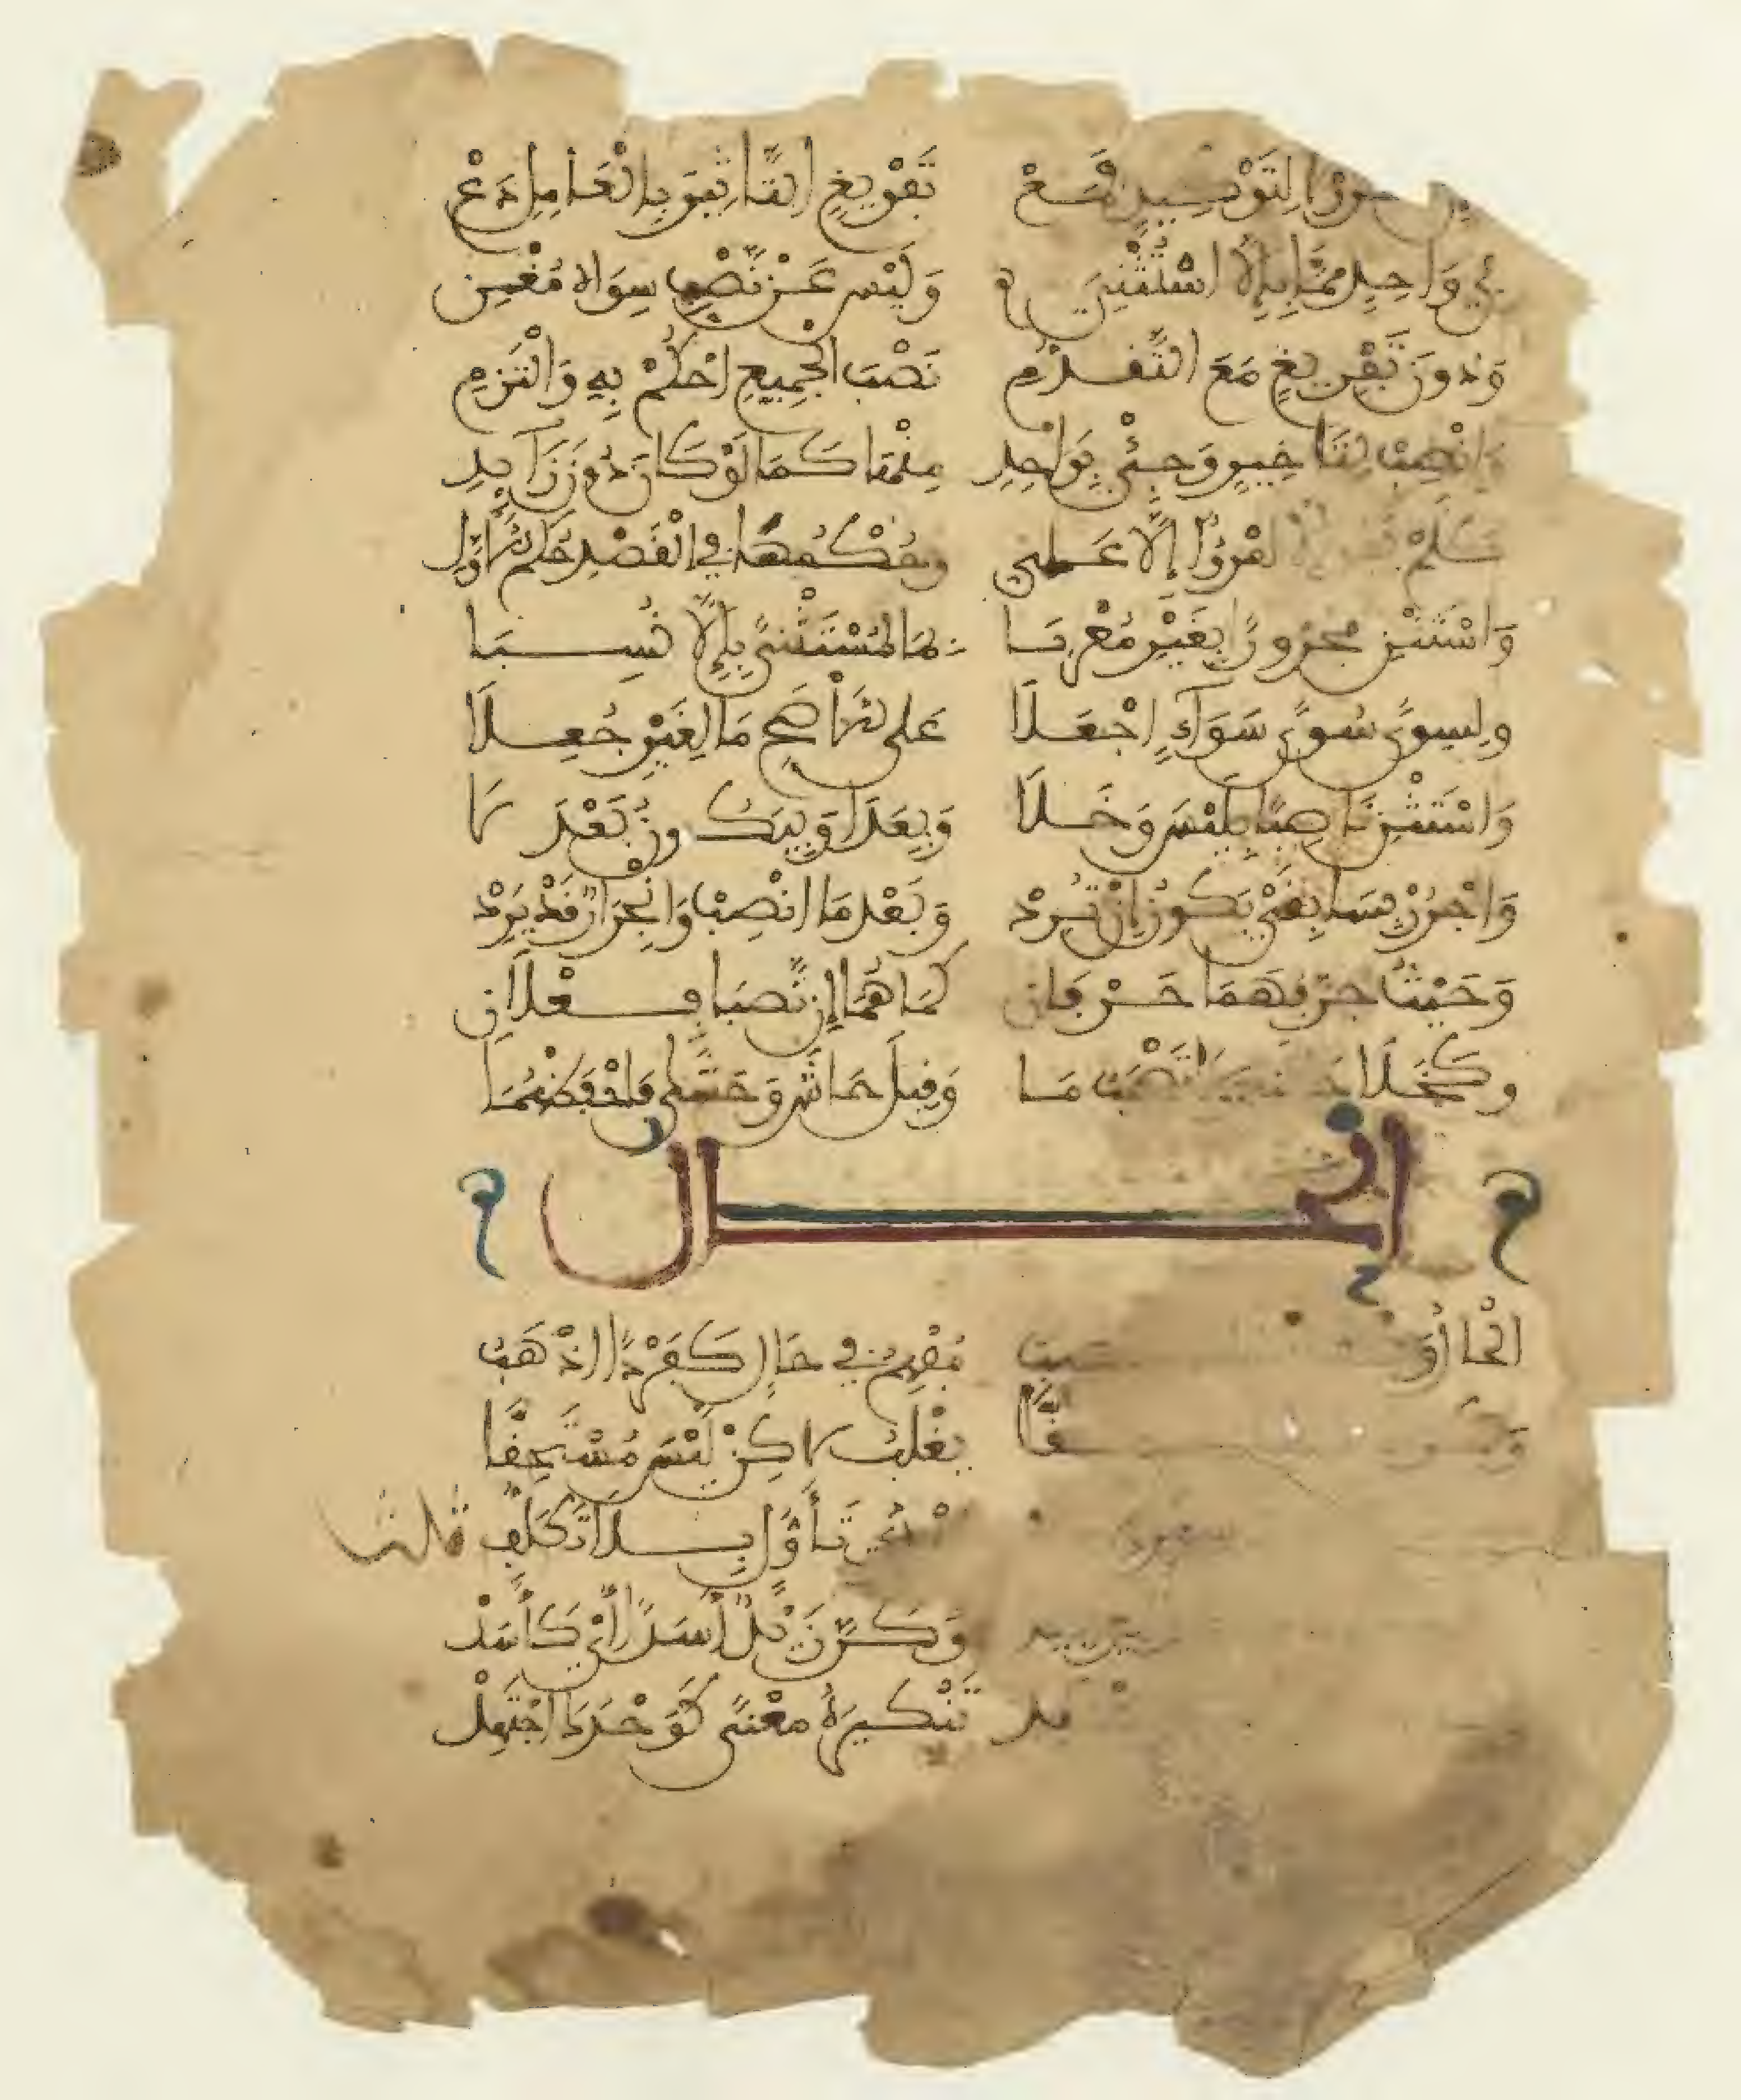 لتوكيد فمع تفريغ التاثير بالعامل دع
في واحد مما بإلا استثني وليس عن نصب سواه مغني
ودون تفريغ مع التقدم نصب الجميع احكم به والتزم
وانصب لتاخير وجئ بواحد منها كما لو كان دون زايد
امرؤ إلا علي وحكمها في القصد حكم الأول
واستثن مجرورا بغير معربا بما لمستثنى بإلا نسبا
ولسوى سوى سواء اجعلا على الأصح ما لغير جعلا
واستثن ناصبا بليس وخلا وبعدا وبيكون بعد لا
واجرر بسابقي يكون إن ترد وبعد ما انصب وانجرار قد يرد
وحيث جرا فهما حرفان كما هما إن نصبا فعلان
وكخلا ما وقيل حاش وحشى فاحفظهما
الحال
الحال مفهم في حال كفردا اذهب
وكون يغلب لاكن ليس مستحقا
تأول بلا تكلف
وكر زيد أسدا أي كأسد
تنكيره معنى كوحدك اجتهد